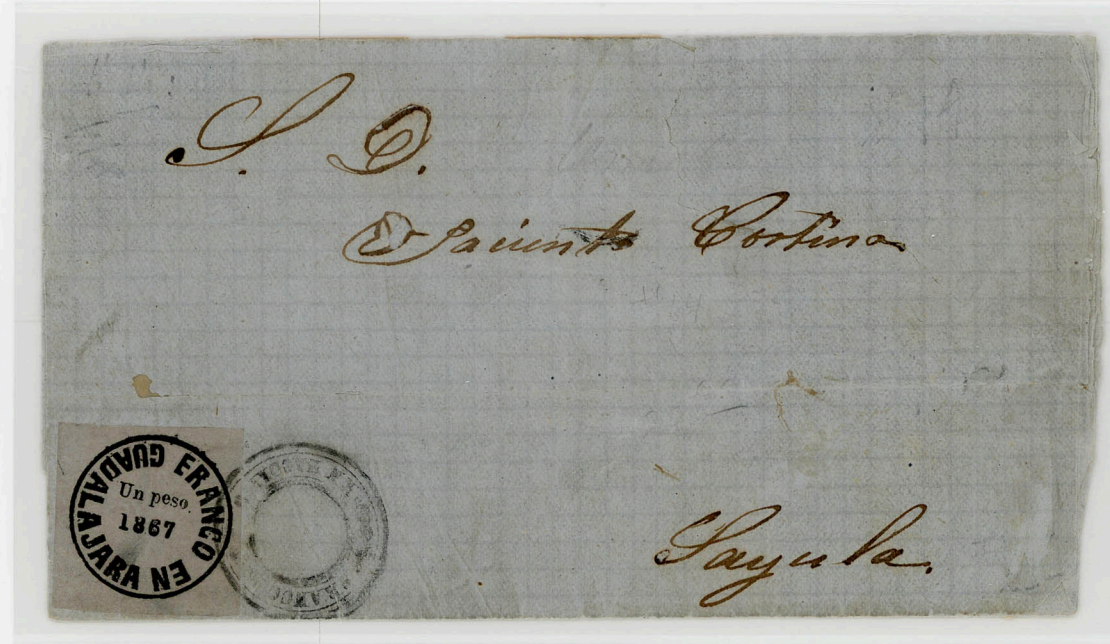 S. D.
Jacinto Cortina
Sayula.
FRANCO EN GUADALAJARA
Un peso.
1867